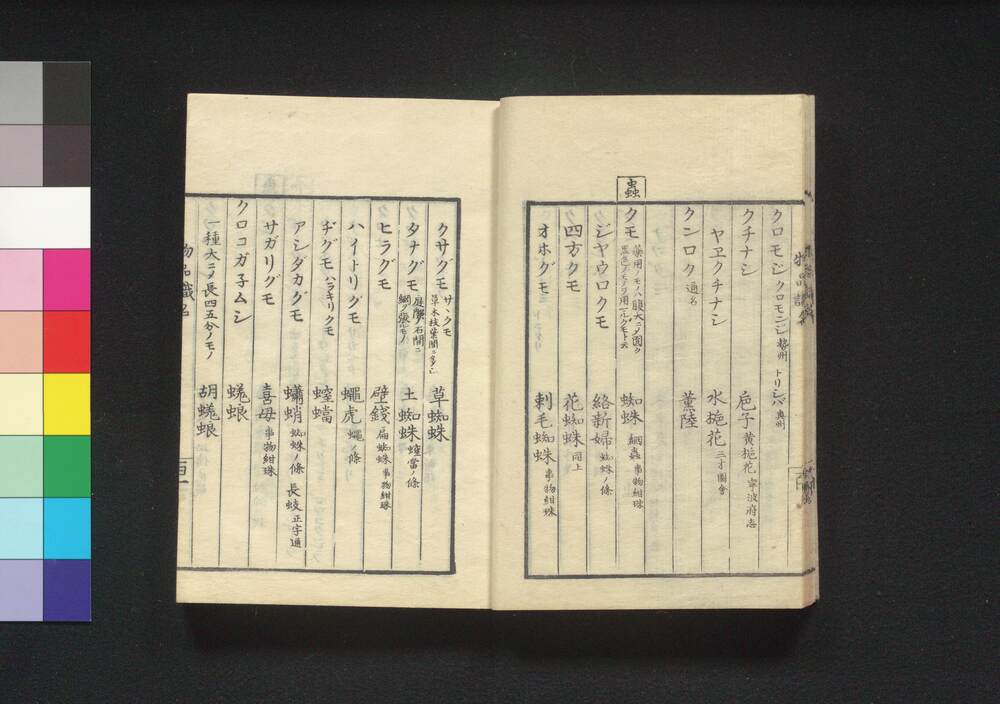 クロモジ クロモンジ 勢州 トリシバ 奥州
クチナシ 巵子 黄梔花 寧波府志
ヤヱクチナシ 水梔花 三才圖會
クンロク 通名 薫陸
蟲
クモ 藥用ノモノハ腹大ニメ図ク 黒色 蜘蛛 網蟲 事物紺珠
ジヤウロクモ 絡新婦 蜘蛛ノ條
四方クモ 花蜘蛛 同上
オホグモ 刺毛蜘蛛 事物紺珠
クサグモ サヽクモ 草木枝葉間ニ多シ 草蜘蛛
タナグモ 庭際ノ石間ニ網ヲ張モノ 土蜘蛛 螲蟷ノ條
ヒラグモ 壁錢 扁蜘蛛 事物紺珠
ハイトリグモ 蠅虎 蠅ノ條
ヂグモ ハラキリクモ 螲蟷
アシダカグモ 蠨蛸 蜘蛛ノ條 長蚑 正字通
サガリグモ 喜母 事物紺珠
クロコガ子ムシ 蜣蜋
一種大ニメ長四五分ノモノ 胡蜣蜋
物品識名